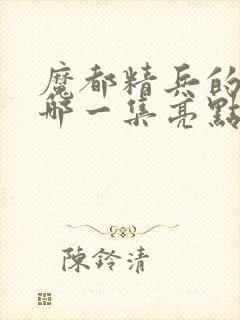 魔都精兵的
哪一集亮點
陳鈴清